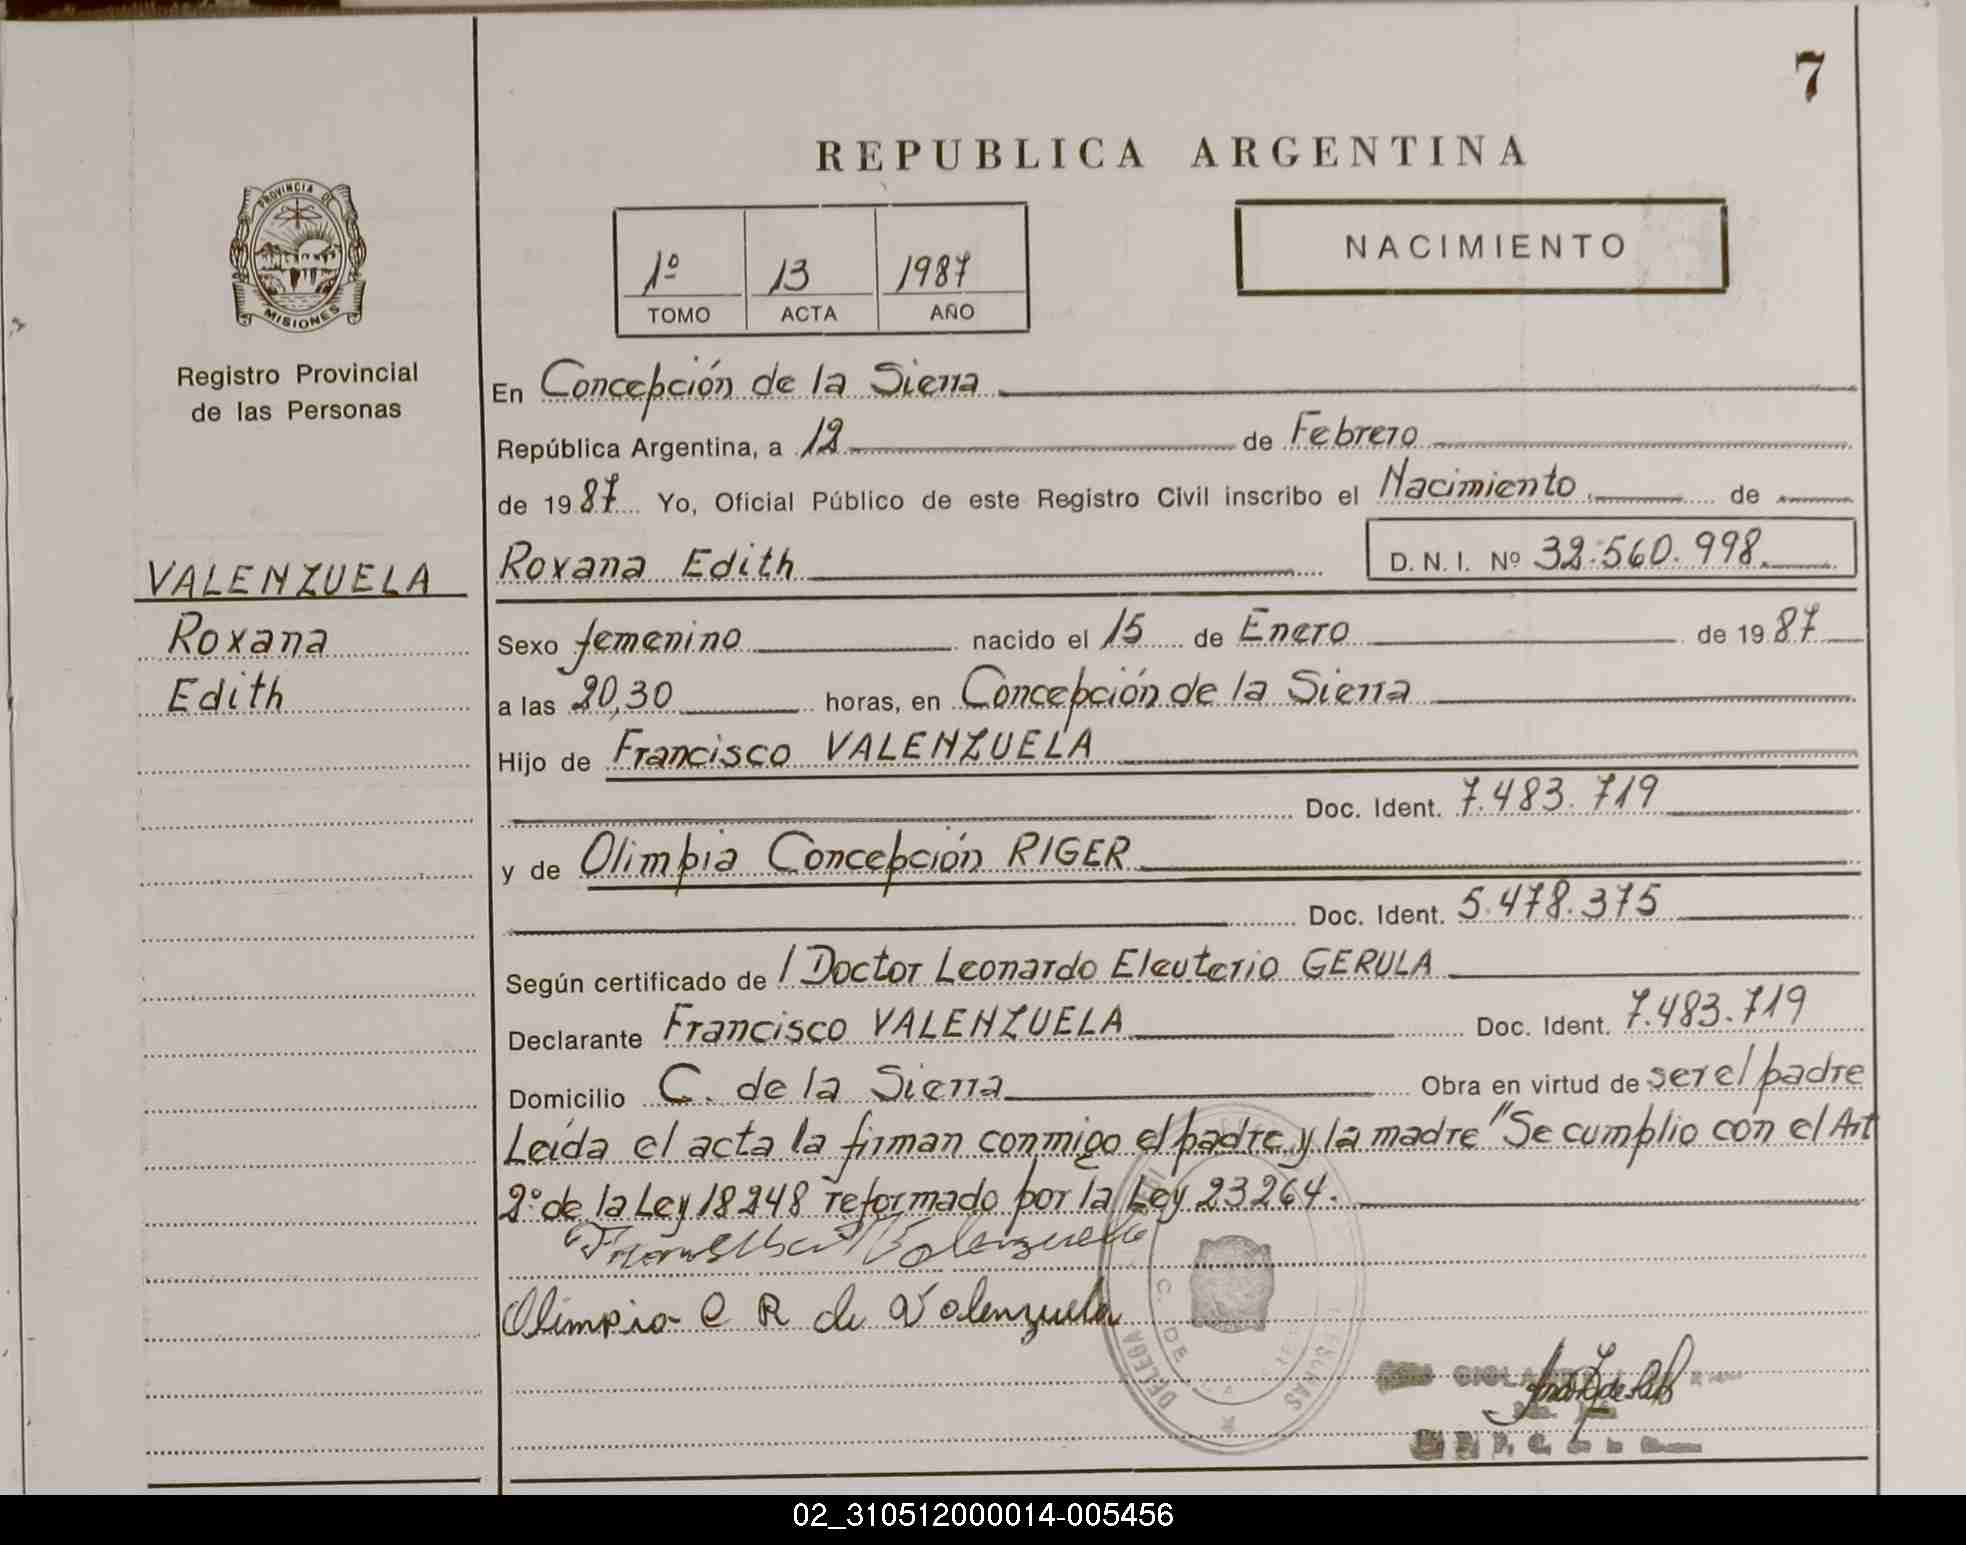 7
REPUBLICA ARGENTINA
PROVINCIA DE
MISIONES
Registro Provincial
de las Personas
1º 13 1987
TOMO ACTA AÑO
NACIMIENTO
En Concepción de la Sierra
República Argentina, a 12 de Febrero
de 1987 Yo, Oficial Público de este Registro Civil inscribo el Nacimiento de
Roxana Edith D.N.I. Nº 32.560.998
VALENZUELA
Roxana
Edith
Sexo femenino nacido el 15 de Enero de 1987
a las 20,30 horas, en Concepción de la Sierra
Hijo de Francisco VALENZUELA
Doc. Ident. 7.483.719
y de Olimpia Concepción RIGER
Doc. Ident. 5.478.375
Según certificado de l Doctor Leonardo Eleuterio GERULA
Declarante Francisco VALENZUELA Doc. Ident. 7.483.719
Domicilio C. de la Sierra Obra en virtud de ser el padre
Leída el acta la firman conmigo el padre y la madre "Se cumplio con el Art
2º de la Ley 18248 reformado por la Ley 23264.
Valenzuela
Olimpia C R de Valenzuela
DELEGA
C. DE
02_310512000014-005456